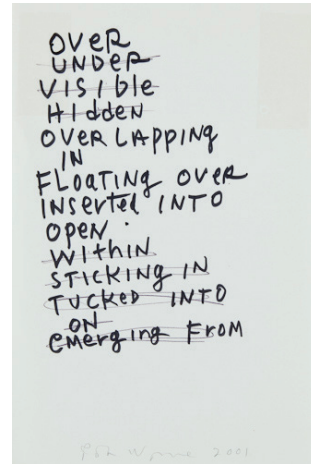 OVER
UNDER
VISIble
HIdden
OVERLAPPING
IN
FLOaTINg OVER
INSerTed INTO
OPeN.
WIthIN
STICKING IN
TUCKeD INTO
ON
eMerging FROM
2001